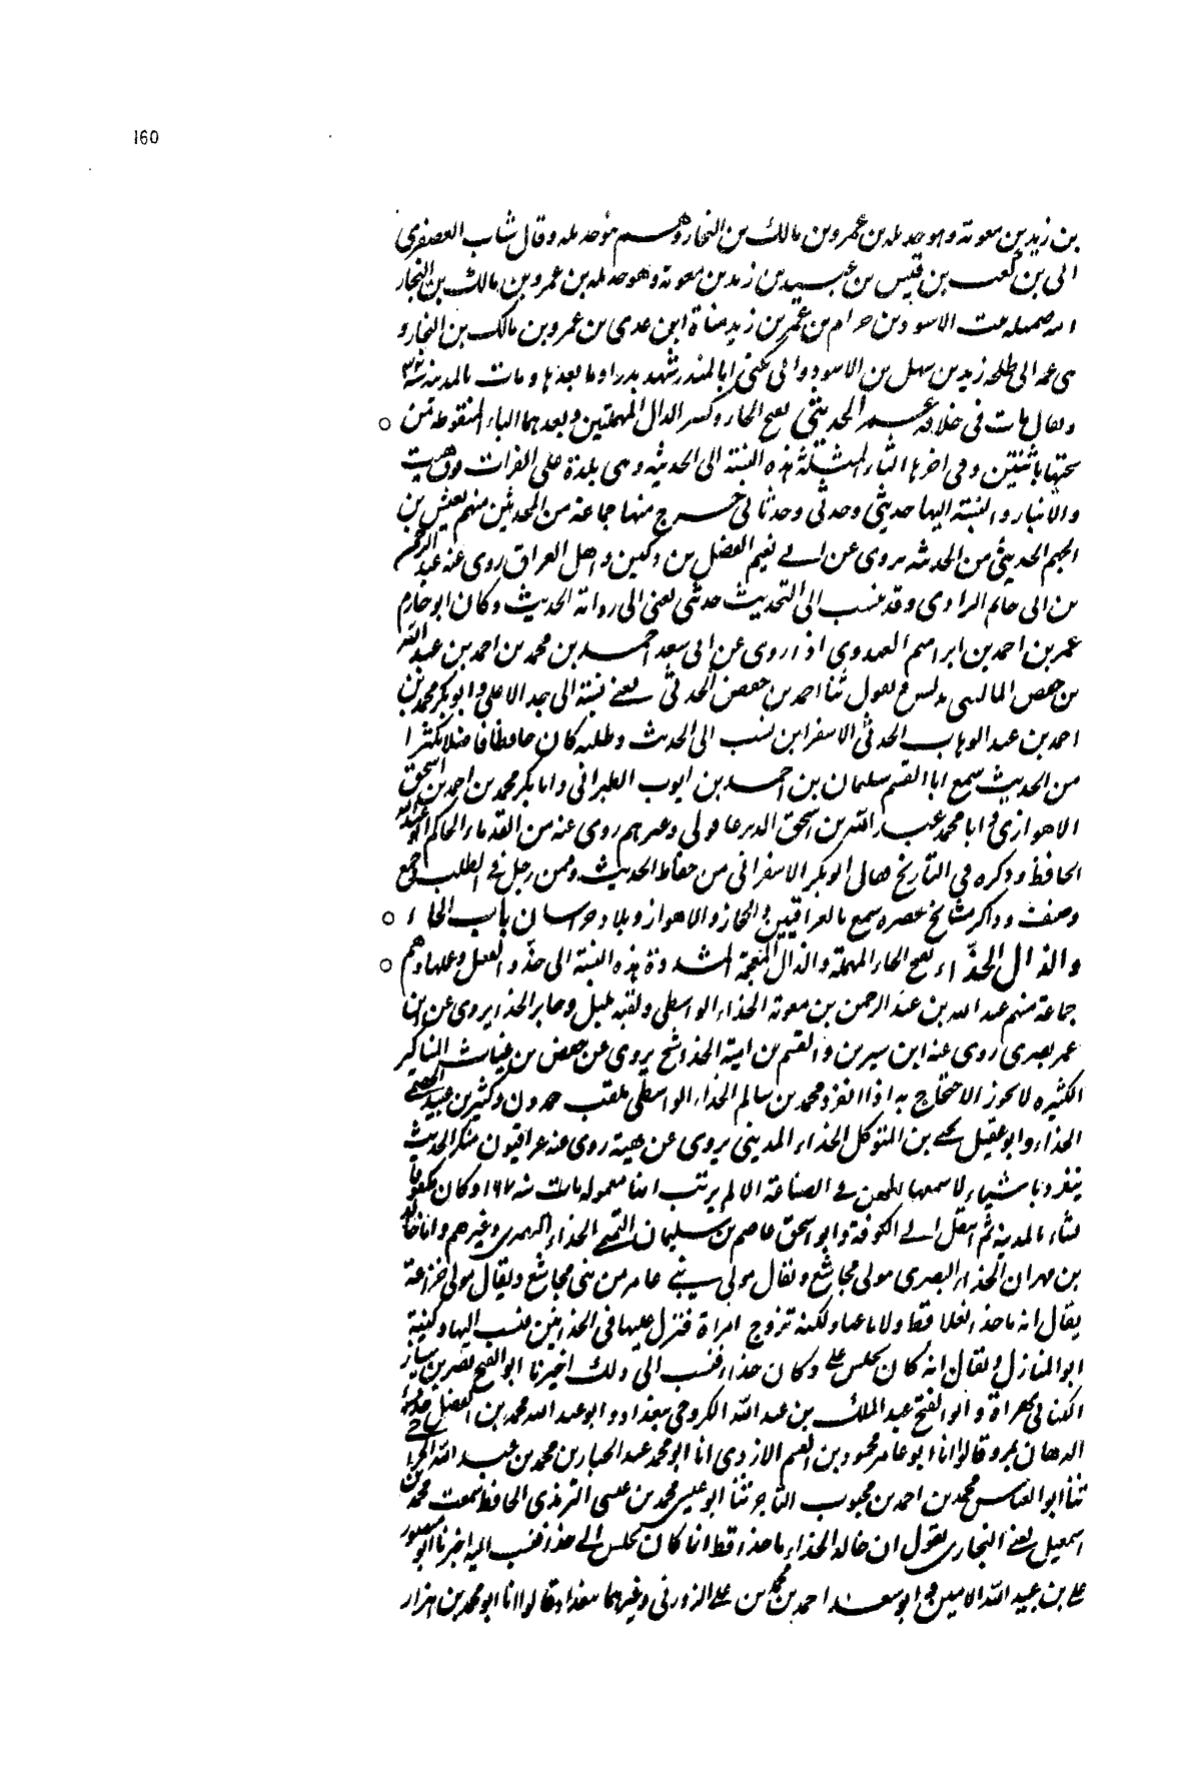 160
بن زيد بن معوية وهو حديله بن عمرو بن مالك بن النجار وهم بنو حديله وقال شباب العصفري
ابى بن كعب بن قيس بن عبيد بن زيد بن معوية وهو حديله بن عمرو بن مالك بن النجار
امه صهيله بنت الاسود بن حرام بن عمرو بن زيد مناة ابن عدى بن عمرو بن مالك بن النجار و
هى عمة ابى طلحة زيد بن سهل بن الاسود وابى يكنى ابا المنذر شهد بدرا وما بعدها ومات بالمدينة
ويقال مات فى خلافة عمر الحديثي بفتح الحاء وكسر الدال المهملتين وبعدهما الياء المنقوطة من
تحتها باثنتين وفى اخرها الثاء المثلثة هذه النسبة الى الحديثة وهى بلدة على الفرات فوق هيت
والانبار والنسبة اليها حديثي وحدثى وحدثانى خرج منها جماعة من المحدثين منهم يعيش بن
الجهم الحديثي من الحديثة يروى عن ابى نعيم الفضل بن دكين واهل العراق روى عنه عبد الرحمن
بن ابى حاتم الرازى وقد ينسب الى التحديث حدثى يعنى الى رواية الحديث وكان ابو حازم
عمر بن احمد بن ابراهيم العبدوى اذا روى عن ابى سعد احمد بن محمد بن احمد بن عبد الله
بن حفص المالينى يدلس فيقول ثنا احمد بن حفص الحدثى يعنى نسبة الى جد الاعلى وابو بكر محمد بن
احمد بن عبد الوهاب الحدثى الاسفراينى نسب الى الحديث وطلبه كان حافظا فاضلا مكثرا
من الحديث سمع ابا القسم سليمان بن احمد بن ايوب الطبرانى وابا بكر محمد بن احمد بن اسحق
الاهوازى وابا محمد عبد الله بن اسحق الدير عاقولى وغيرهم روى عنه من القدماء الحاكم ابو عبد الله
الحافظ وذكره فى التاريخ فقال ابو بكر الاسفراينى من حفاظ الحديث وممن رحل فى الطلب جمع
وصنف وذاكر مشايخ عصره سمع بالعراقيين والحجاز والاهواز وبلاد خراسان باب الحاء
والذال الحذّاء بفتح الحاء المهملة والذال المعجمة المشددة هذه النسبة الى حذو النعل وعملها وهم
جماعة منهم عبد الله بن عبد الرحمن بن معوية الحذاء الواسطى ولقبه وجابر الحذاء يروى عن ابن
عمر بصرى روى عنه ابن سيرين والقسم بن امية الحذاء شيخ يروى عن حفص بن غياث المناكير
الكثيره لا يجوز الاحتجاج به اذا انفرد ومحمد بن سالم الحذاء الواسطى يلقب حمدون وكثير بن عبيد
الحذاء وابو عقيل يحيى بن المتوكل الحذاء المدينى يروى عن بهية روى عنه عراقيون منكر الحديث
ينفرد باشياء لا سمعها الممعن فى الصناعة الا لم يرتب انها معموله مات سنة ١٦٧ وكان مكفوفا
نشاء بالمدينة ثم انتقل الى الكوفة وابو اسحق عاصم بن سليمان التميمى الحذاء البصرى وغيرهم واما خالد
بن مهران الحذاء البصرى مولى مجاشع ويقال مولى بنى عامر من بنى مجاشع ويقال مولى خزاعة
يقال انه ما حذا نعلا قط ولا باعها ولكنه تزوج امراة فنزل عليها فى الحذائين فنسب اليها وكنيته
ابو المنازل ويقال انه كان يجلس على دكان حذاء فنسب الى ذلك اخبرنا ابو الفتح نصر بن سيار
الكنانى بهراة وابو الفتح عبد الملك بن عبد الله الكروخى ببغداد وابو عبد الله محمد بن الفضل
الدهان بمرو قالوا انا ابو عامر محمود بن القسم الازدى انا ابو محمد عبد الجبار بن محمد بن عبد الله الجراحى
ثنا ابو العباس محمد بن احمد بن محبوب التاجر ثنا ابو عيسى محمد بن عيسى الترمذى الحافظ سمعت محمد بن
اسمعيل يعنى البخارى يقول ان خالد الحذاء ما حذا قط انما كان يجلس الى حذاء فنسب اليه اخبرنا ابو منصور
على بن عبيد الله الامين وابو سعد احمد بن محمد بن على الزوزنى وغيرهما ببغداد قالوا انا ابو محمد بن هزار